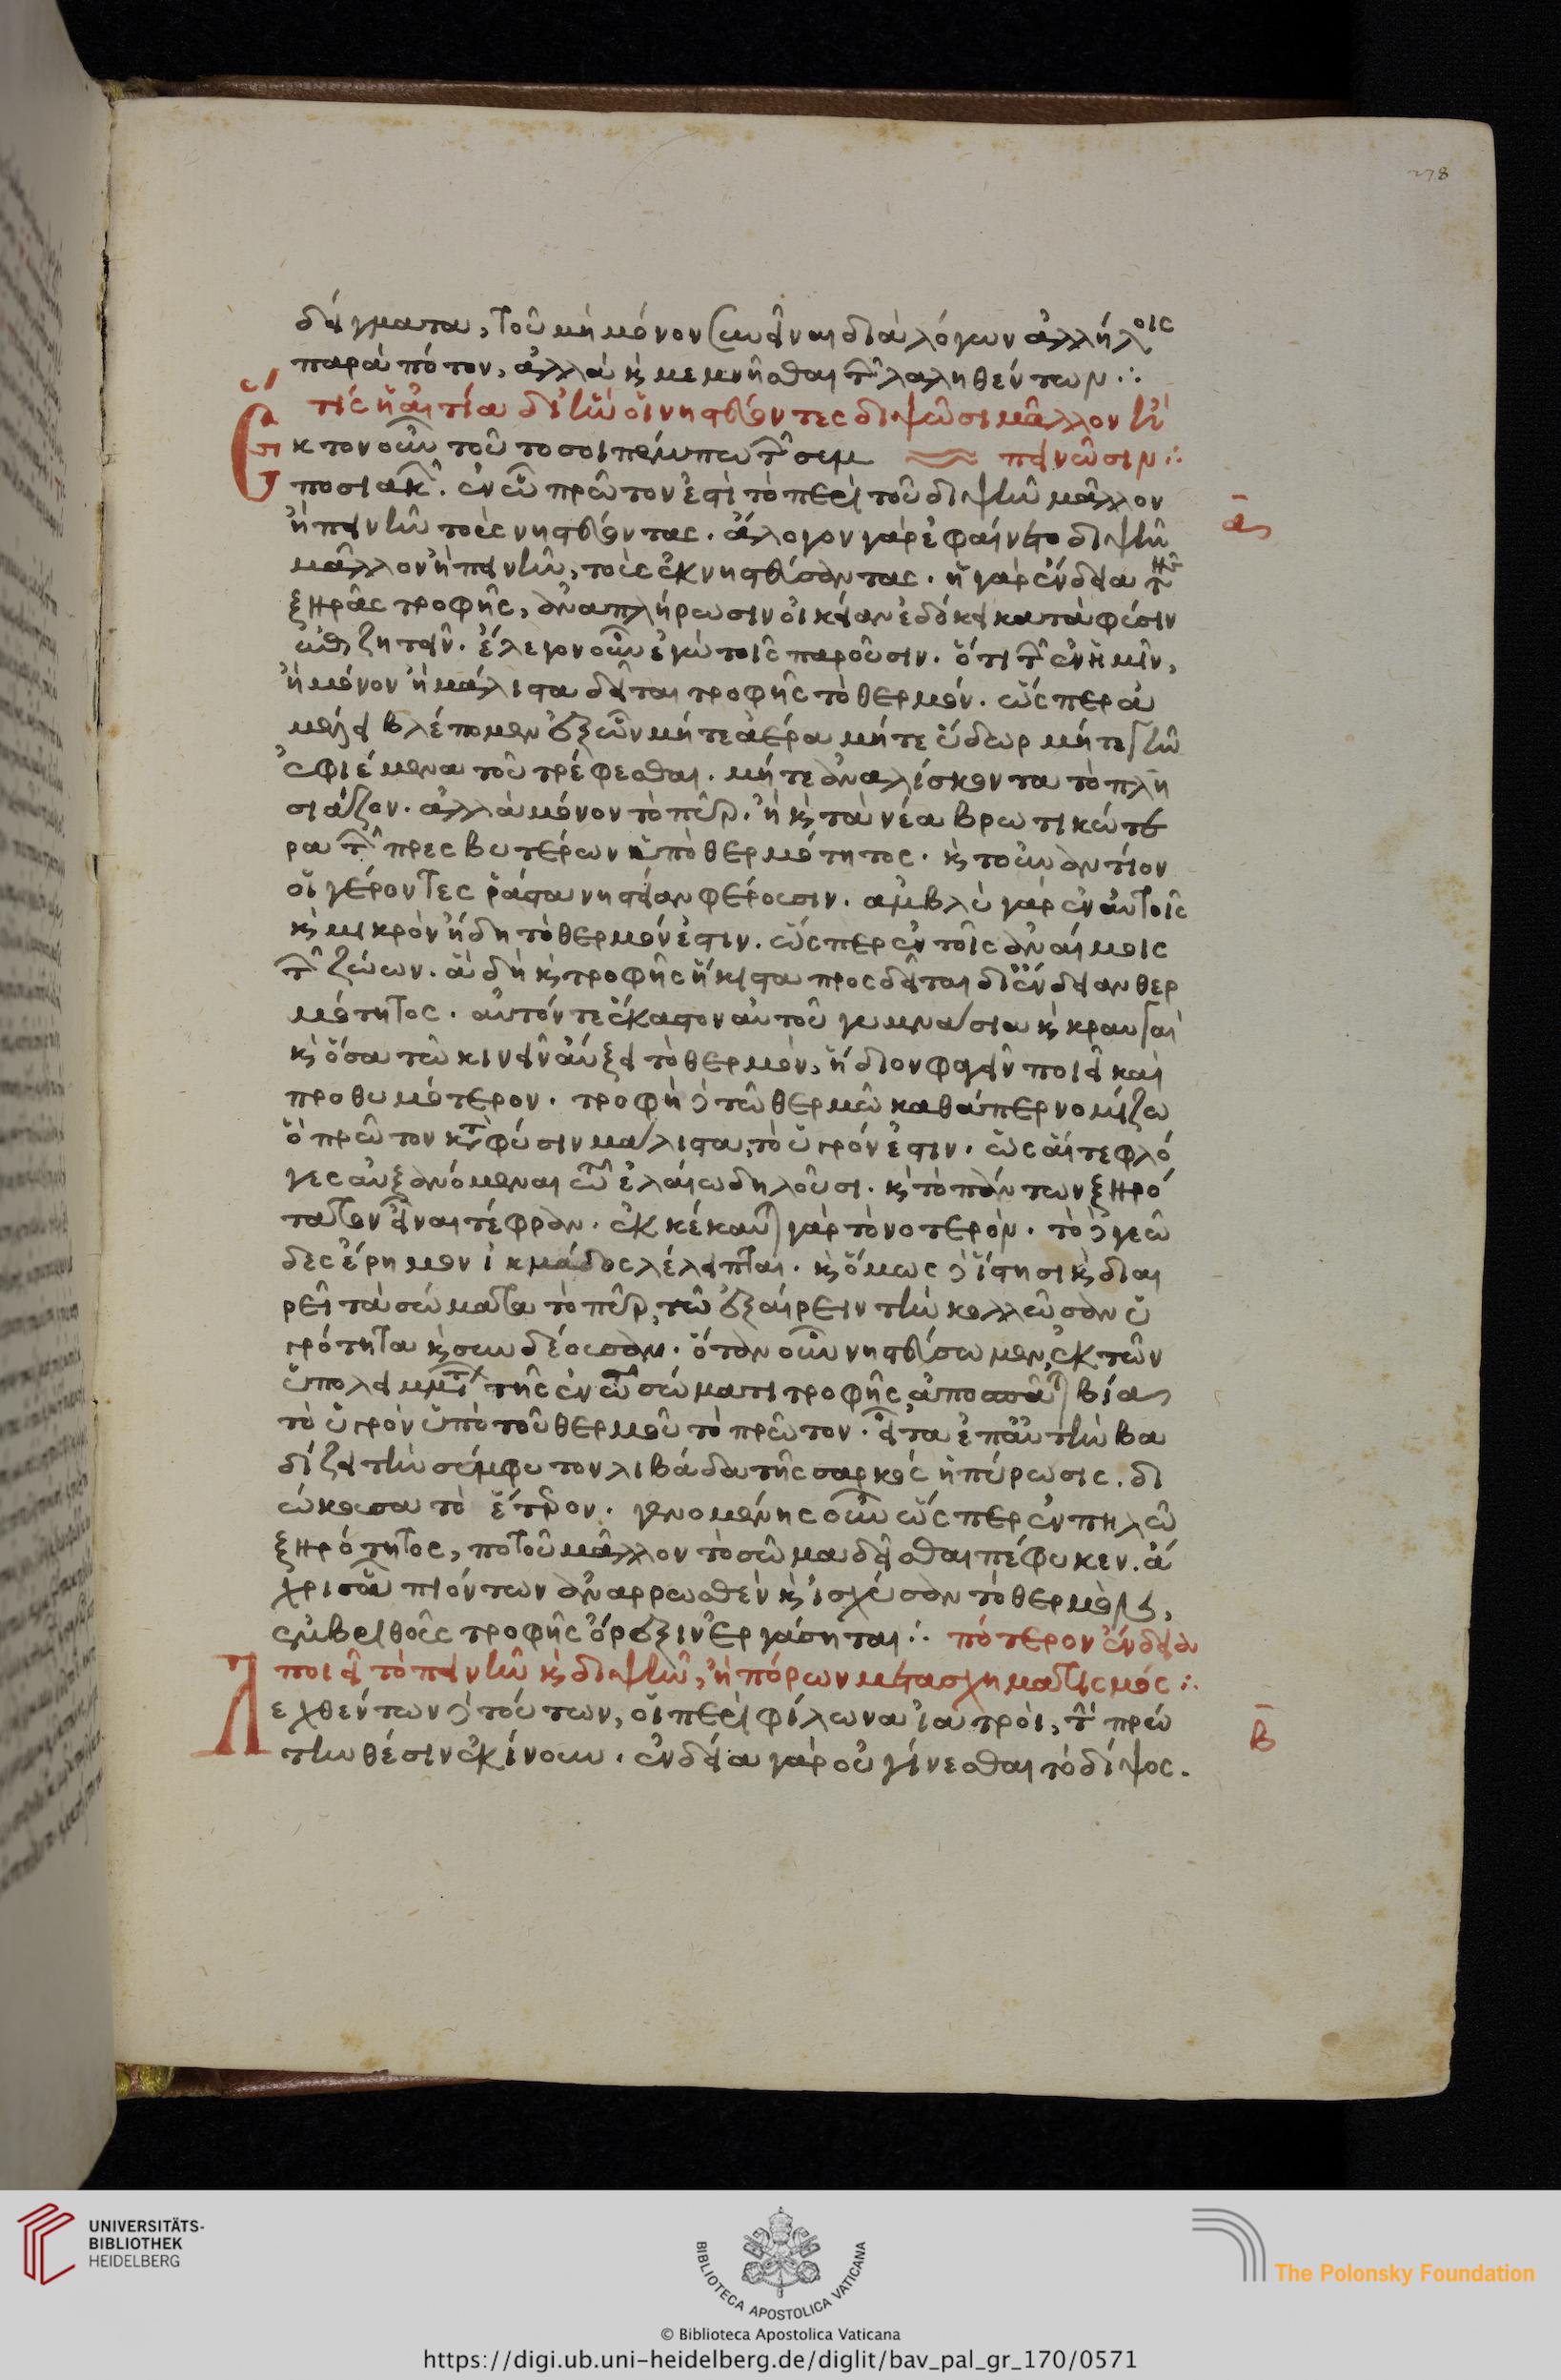 278
δείγματα, τοῦ μὴ μόνον συνεῖναι διὰ λόγων ἀλλήλοις
παρὰ πότον, ἀλλὰ κ̀ μεμνῆσθαι τ῀ λαληθέντων ∴
τίς ἡ αἰτία δι' ἣν οἱ νηστεύοντες διψῶσι μᾶλλον ἢ
Ἕκτον οὖν τοῦτο σοι πέμπω τ῀ συμ πεινῶσιν ∴
ποσιακ῀. ἐν ᾧ πρῶτον ἐστὶ τὸ περὶ τοῦ διψῆν μᾶλλον
ᾱον
ἢ πεινῆν τοὺς νηστεύοντας. ἄλογον γὰρ ἐφαίνετο διψῆν
μᾶλλον ἢ πεινῆν, τοὺς ἐκνηστεύσαντας. ἡ γὰρ ἔνδεια τῆς
ξηρᾶς τροφῆς, ἀναπλήρωσιν οἰκείαν ἐδόκει κατὰ φύσιν
ἐπιζητεῖν. ἔλεγον οὖν ἐγὼ τοῖς παροῦσιν. ὅτι τ῀ ἐν ἡμῖν,
ἢ μόνον ἢ μάλιστα δεῖται τροφῆς τὸ θερμόν. ὥσπερ ἀ
μέλει βλέπομεν ἔξωθεν μήτε ἀέρα μήτε ὕδωρ μήτε γῆν
ἐφιέμενα τοῦ τρέφεσθαι. μήτε ἀναλίσκοντα τὸ πλη
σιάζον. ἀλλὰ μόνον τὸ πῦρ. ᾗ κ̀ τὰ νέα βρωτικώτε
ρα τ῀ πρεσβυτέρων ὑπὸ θερμότητος. κ̀ τοὐναντίον
οἱ γέροντες ῥᾷστα νηστείαν φέρουσιν. ἀμβλὺ γὰρ ἐν αὐτοῖς
κ̀ μικρὸν ἤδη τὸ θερμόν ἐστιν. ὥσπερ ἐν τοῖς ἀναίμοις
τ῀ ζώων. ἃ δὴ κ̀ τροφῆς ἥκιστα προσδεῖται δι' ἔνδειαν θερ
μότητος. αὐτόν τε ἕκαστον αὑτοῦ γυμνάσια κ̀ κραυγαὶ
κ̀ ὅσα τῷ κινεῖν αὔξει τὸ θερμόν, ἥδιον φαγεῖν ποιεῖ καὶ
προθυμότερον. τροφὴ δὲ τῷ θερμῷ καθάπερ νομίζω
ὃ πρῶτον κτ̀ φύσιν μάλιστα, τὸ ὑγρόν ἐστιν. ὡς αἵ τε φλό
γες αὐξανόμεναι τῷ ἐλαίῳ δηλοῦσι. κ̀ τὸ πάντων ξηρό
τατον εἶναι τέφραν. ἐκκέκαυται γὰρ τὸ νοτερόν. τὸ δὲ γεῶ
δες ἔρημον ἰκμάδος λέλειπται. κ̀ ὅμως διίστησι κ̀ διαι
ρεῖ τὰ σώματα τὸ πῦρ, τῷ ἐξαίρειν τὴν κολλῶσαν ὑ
γρότητα κ̀ συνδέουσαν. ὅταν οὖν νηστεύσωμεν, ἐκ τῶν
ὑπολειμμάτ῀ τῆς ἐν τῷ σώματι τροφῆς ἀποσπᾶται βίᾳ
τὸ ὑγρὸν ὑπὸ τοῦ θερμοῦ τὸ πρῶτον. εἶτα ἐπ' αὐτὴν βα
δίζει τὴν σύμφυτον λιβάδα τῆς σαρκὸς ἡ πύρωσις. δι
ώκουσα τὸ ἕτερον. γενομένης οὖν ὥσπερ ἐν πηλῷ
ξηρότητος, ποτοῦ μᾶλλον τὸ σῶμα δεῖσθαι πέφυκεν. ἄ
χρις οὗ πιόντων ἀναρρωσθὲν κ̀ ἰσχύσαν τὸ θερμόν,
ἐμβριθοῦς τροφῆς ὄρεξιν ἐργάσηται ∴ πότερον ἔνδεια
ποιεῖ τὸ πεινῆν κ̀ διψῆν, ἢ πόρων μετασχηματισμός ∴
Λεχθέντων δὲ τούτων, οἱ περὶ φίλωνα ἰατροὶ, τ῀ πρώ
β̄
την θέσιν ἐκίνουν. ἐνδείᾳ γὰρ οὐ γίνεσθαι τὸ δίψος.
UNIVERSITÄTS-
BIBLIOTHEK
HEIDELBERG
BIBLIOTECA APOSTOLICA VATICANA
The Polonsky Foundation
© Biblioteca Apostolica Vaticana
https://digi.ub.uni-heidelberg.de/diglit/bav_pal_gr_170/0571